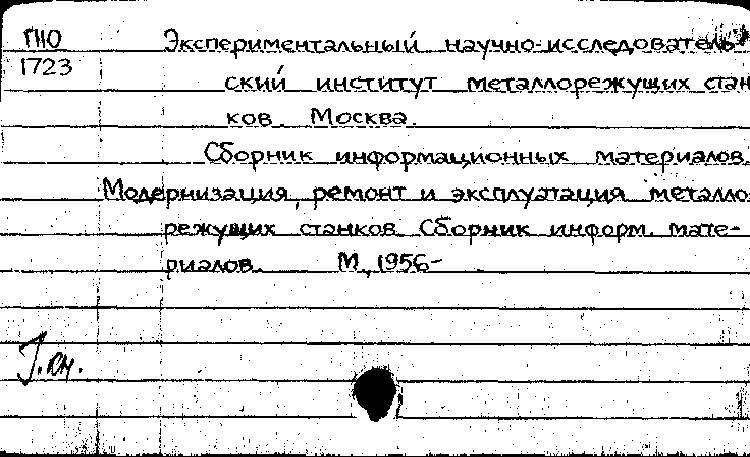 ГПО Экспериментальный научно-исследователь-
1723 ский институт металлорежущих стан
ков. Москва.
Сборник информационных материалов.
Модернизация, ремонт и эксплуатация металло
режущих станков. Сборник информ. мате-
риалов. М., 1956-